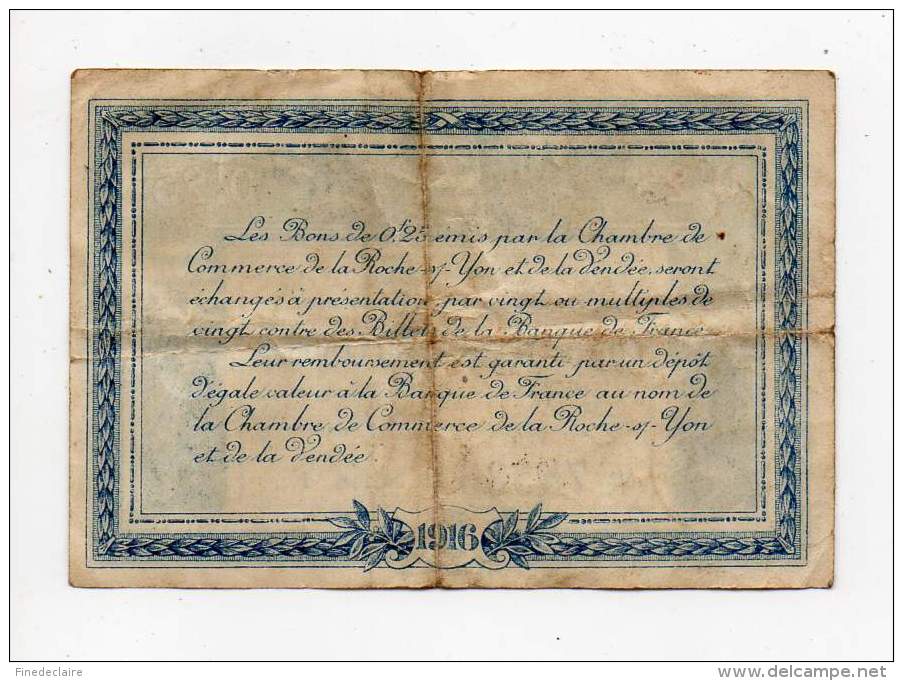 Les Bons de 0f,25 émis par la Chambre de
Commerce de la Roche-s/-Yon et de la Vendée, seront
échangés à présentation, par vingt ou multiples de
vingt contre des Billets de la Banque de France
Leur remboursement est garanti par un dépôt
d'égale valeur à la Banque de France au nom de
la Chambre de Commerce de la Roche-s/-Yon
et de la Vendée.
1916
Finedeclaire
www.delcampe.net